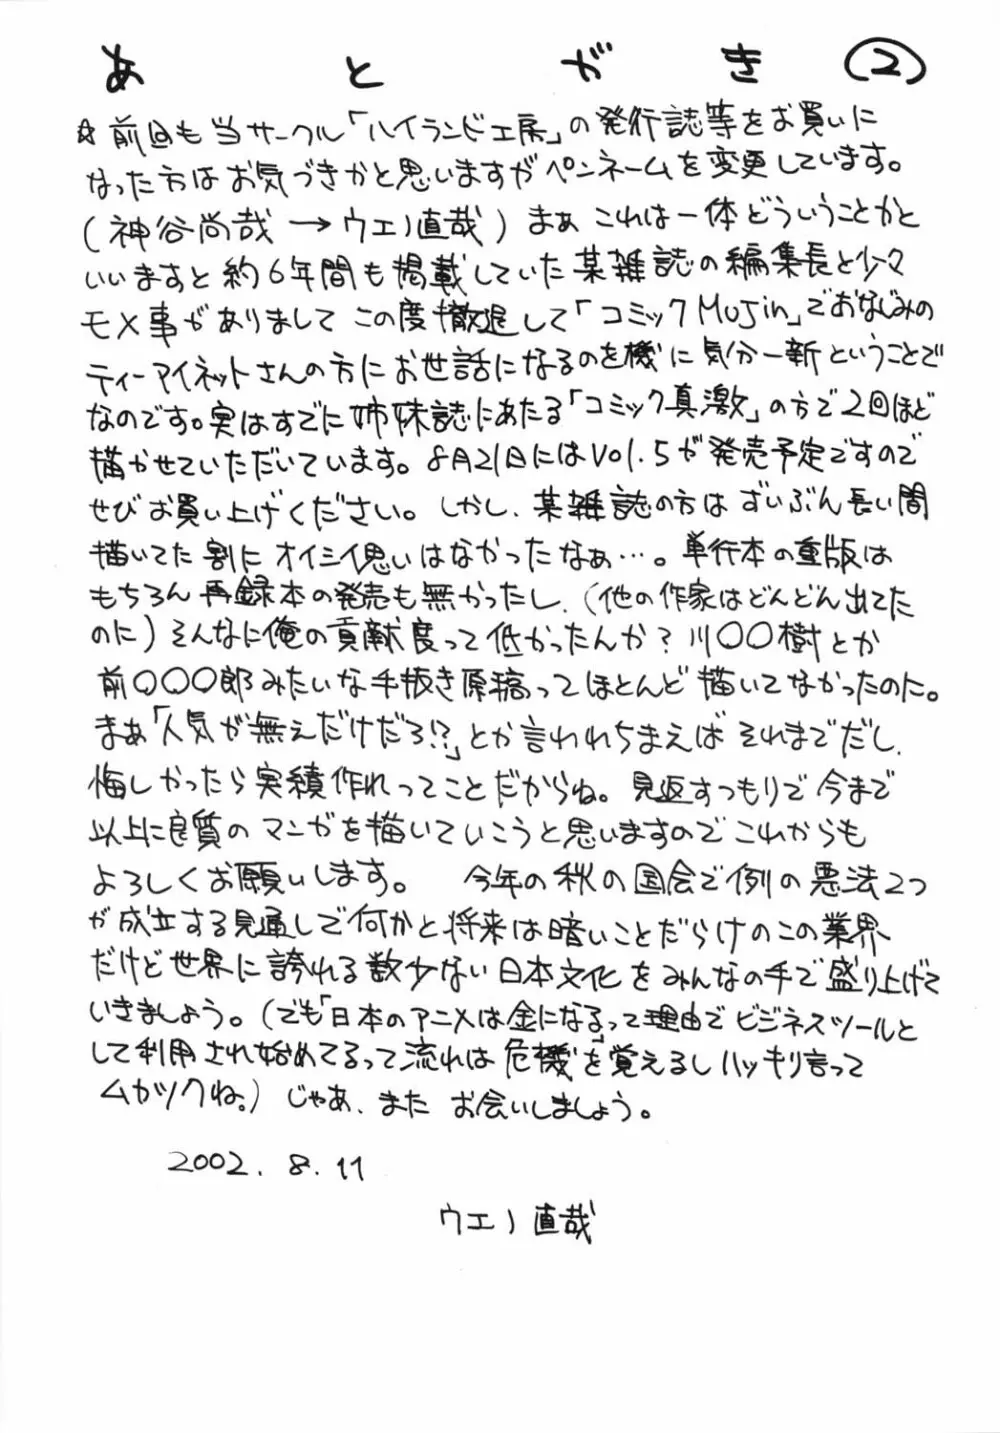 あとがき②
☆前回も当サークル「ハイランド工房」の発行誌等をお買いに
なった方はお気づきかと思いますがペンネームを変更しています。
(神谷尚哉→ウエノ直哉)まぁこれは一体どういうことかと
いいますと約6年間も掲載していた某雑誌の編集長と少々
モメ事がありましてこの度撤退して「コミックMujin」でおなじみの
ティーアイネットさんの方にお世話になるのを機に気分一新ということで
なのです。実はすでに姉妹誌にあたる「コミック真激」の方で2回ほど
描かせていただいています。8月21日にはVol.5が発売予定ですので
ぜひお買い上げください。しかし、某雑誌の方はずいぶん長い間
描いてた割にオイシイ思いはなかったなぁ…。単行本の重版は
もちろん再録本の発売も無かったし、(他の作家はどんどん出てた
のに)そんなに俺の貢献度って低かったんか?川○○樹とか
前○○○郎みたいな手抜き原稿ってほとんど描いてなかったのに。
まぁ「人気が無えだけだろ!?」とか言われちまえばそれまでだし、
悔しかったら実績作れってことだからね。見返すつもりで今まで
以上に良質のマンガを描いていこうと思いますのでこれからも
よろしくお願いします。 今年の秋の国会で例の悪法2つ
が成立する見通しで何かと将来は暗いことだらけのこの業界
だけど世界に誇れる数少ない日本文化をみんなの手で盛り上げて
いきましょう。(でも「日本のアニメは金になる」って理由でビジネスツールと
して利用され始めてるって流れは危機を覚えるしハッキリ言って
ムカツクね。)じゃあ、またお会いしましょう。
2002.8.11
ウエノ直哉